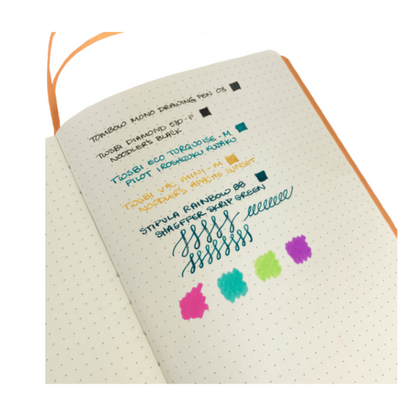 TOMBOW MONO DRAWING PEN 03
TWSBI DIAMOND 580-F
NOODLER'S BLACK
TWSBI ECO TURQUOISE-M
PILOT IROSHIZUKU KUJAKU
TWSBI VAC MINI-M
NOODLER'S APACHE SUNSET
STIPULA RAINBOW BB
SHAEFFER SKRIP GREEN